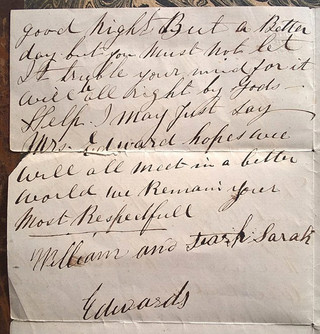 good night But a Better
day but you Must not let
It truble your mind for it
will all right by Gods
Help I May Just Say
Mrs Edward hopes we
will all meet in a better
world we Remain your
Most Respectfull
William and Sarah
Edwards